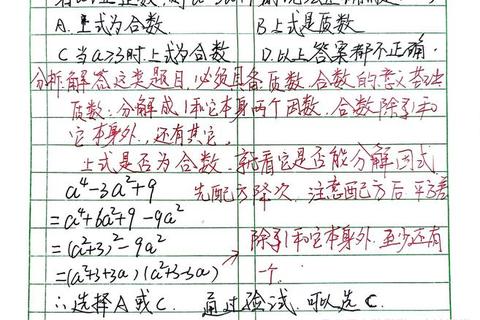 A. 上式为合数 B 上式是质数
C 当a>3时上式为合数 D. 以上答案都不正确.
分析:解答这类题目,必须具备质数,合数的意义
质数:分解成1和它本身两个因数,合数除了1和
它本身外,还有其它.
上式是否为合数,就看它是否能分解因式
a⁴-3a²+9 先配方降次,注意配方后平方差
=a⁴+6a²+9-9a²
=(a²+3)²-9a² 除了1和它本身外,至少还有
=(a²+3+3a)(a²+3-3a) 一个.
∴选择A或C. 通过验试,可以选C.